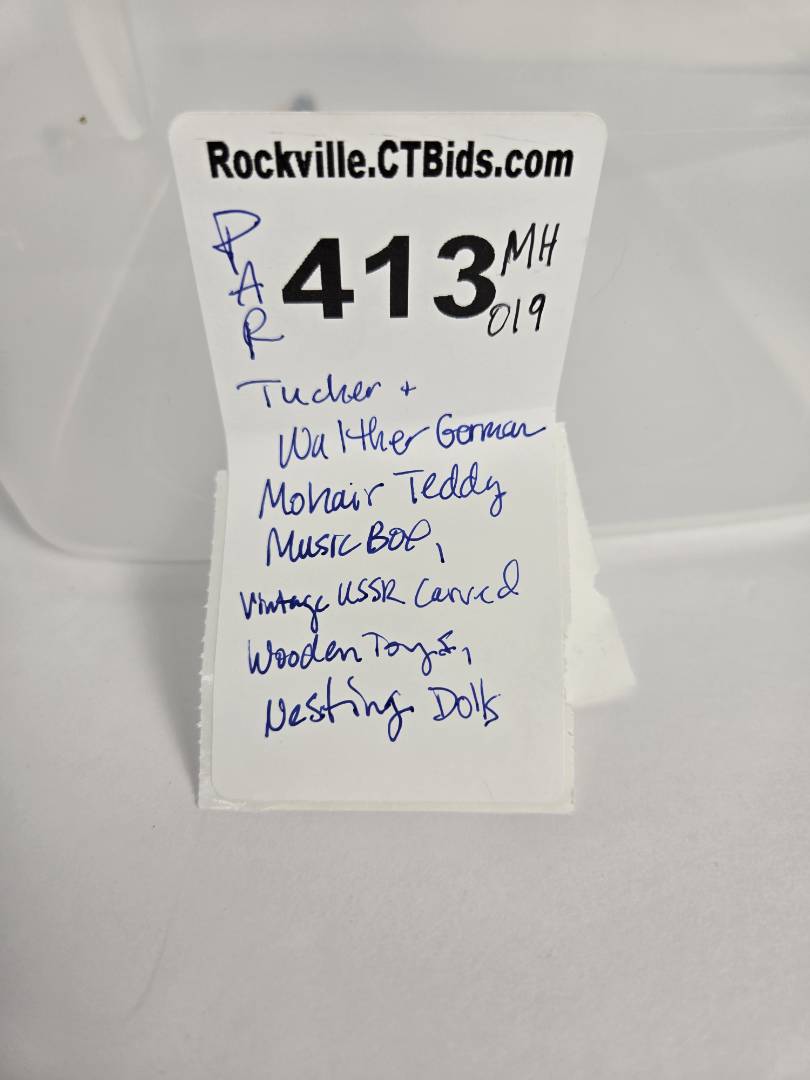 Rockville.CTBids.com
PAR
413
MH
019
Tucher +
Walther German
Mohair Teddy
Music Box,
Vintage USSR Carved
Wooden Toys,
Nesting Dolls